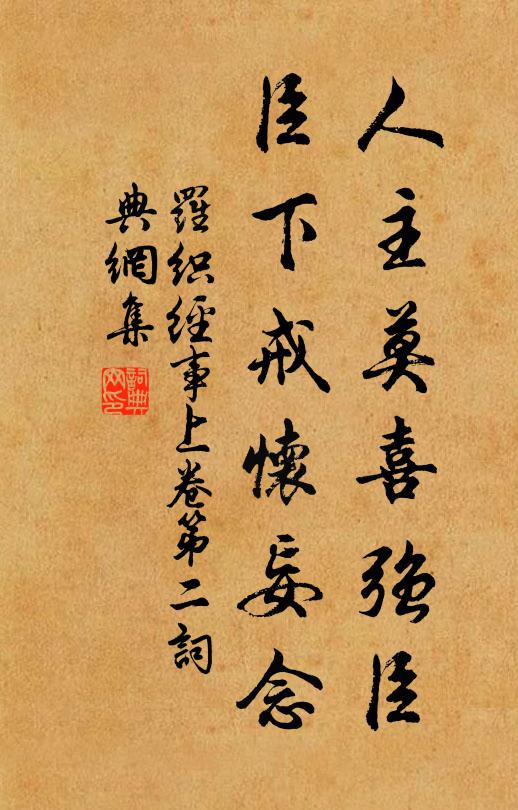 人主莫喜強臣
臣下戒懷妄念
羅織經事上卷第二詞
典網集
詞典網印